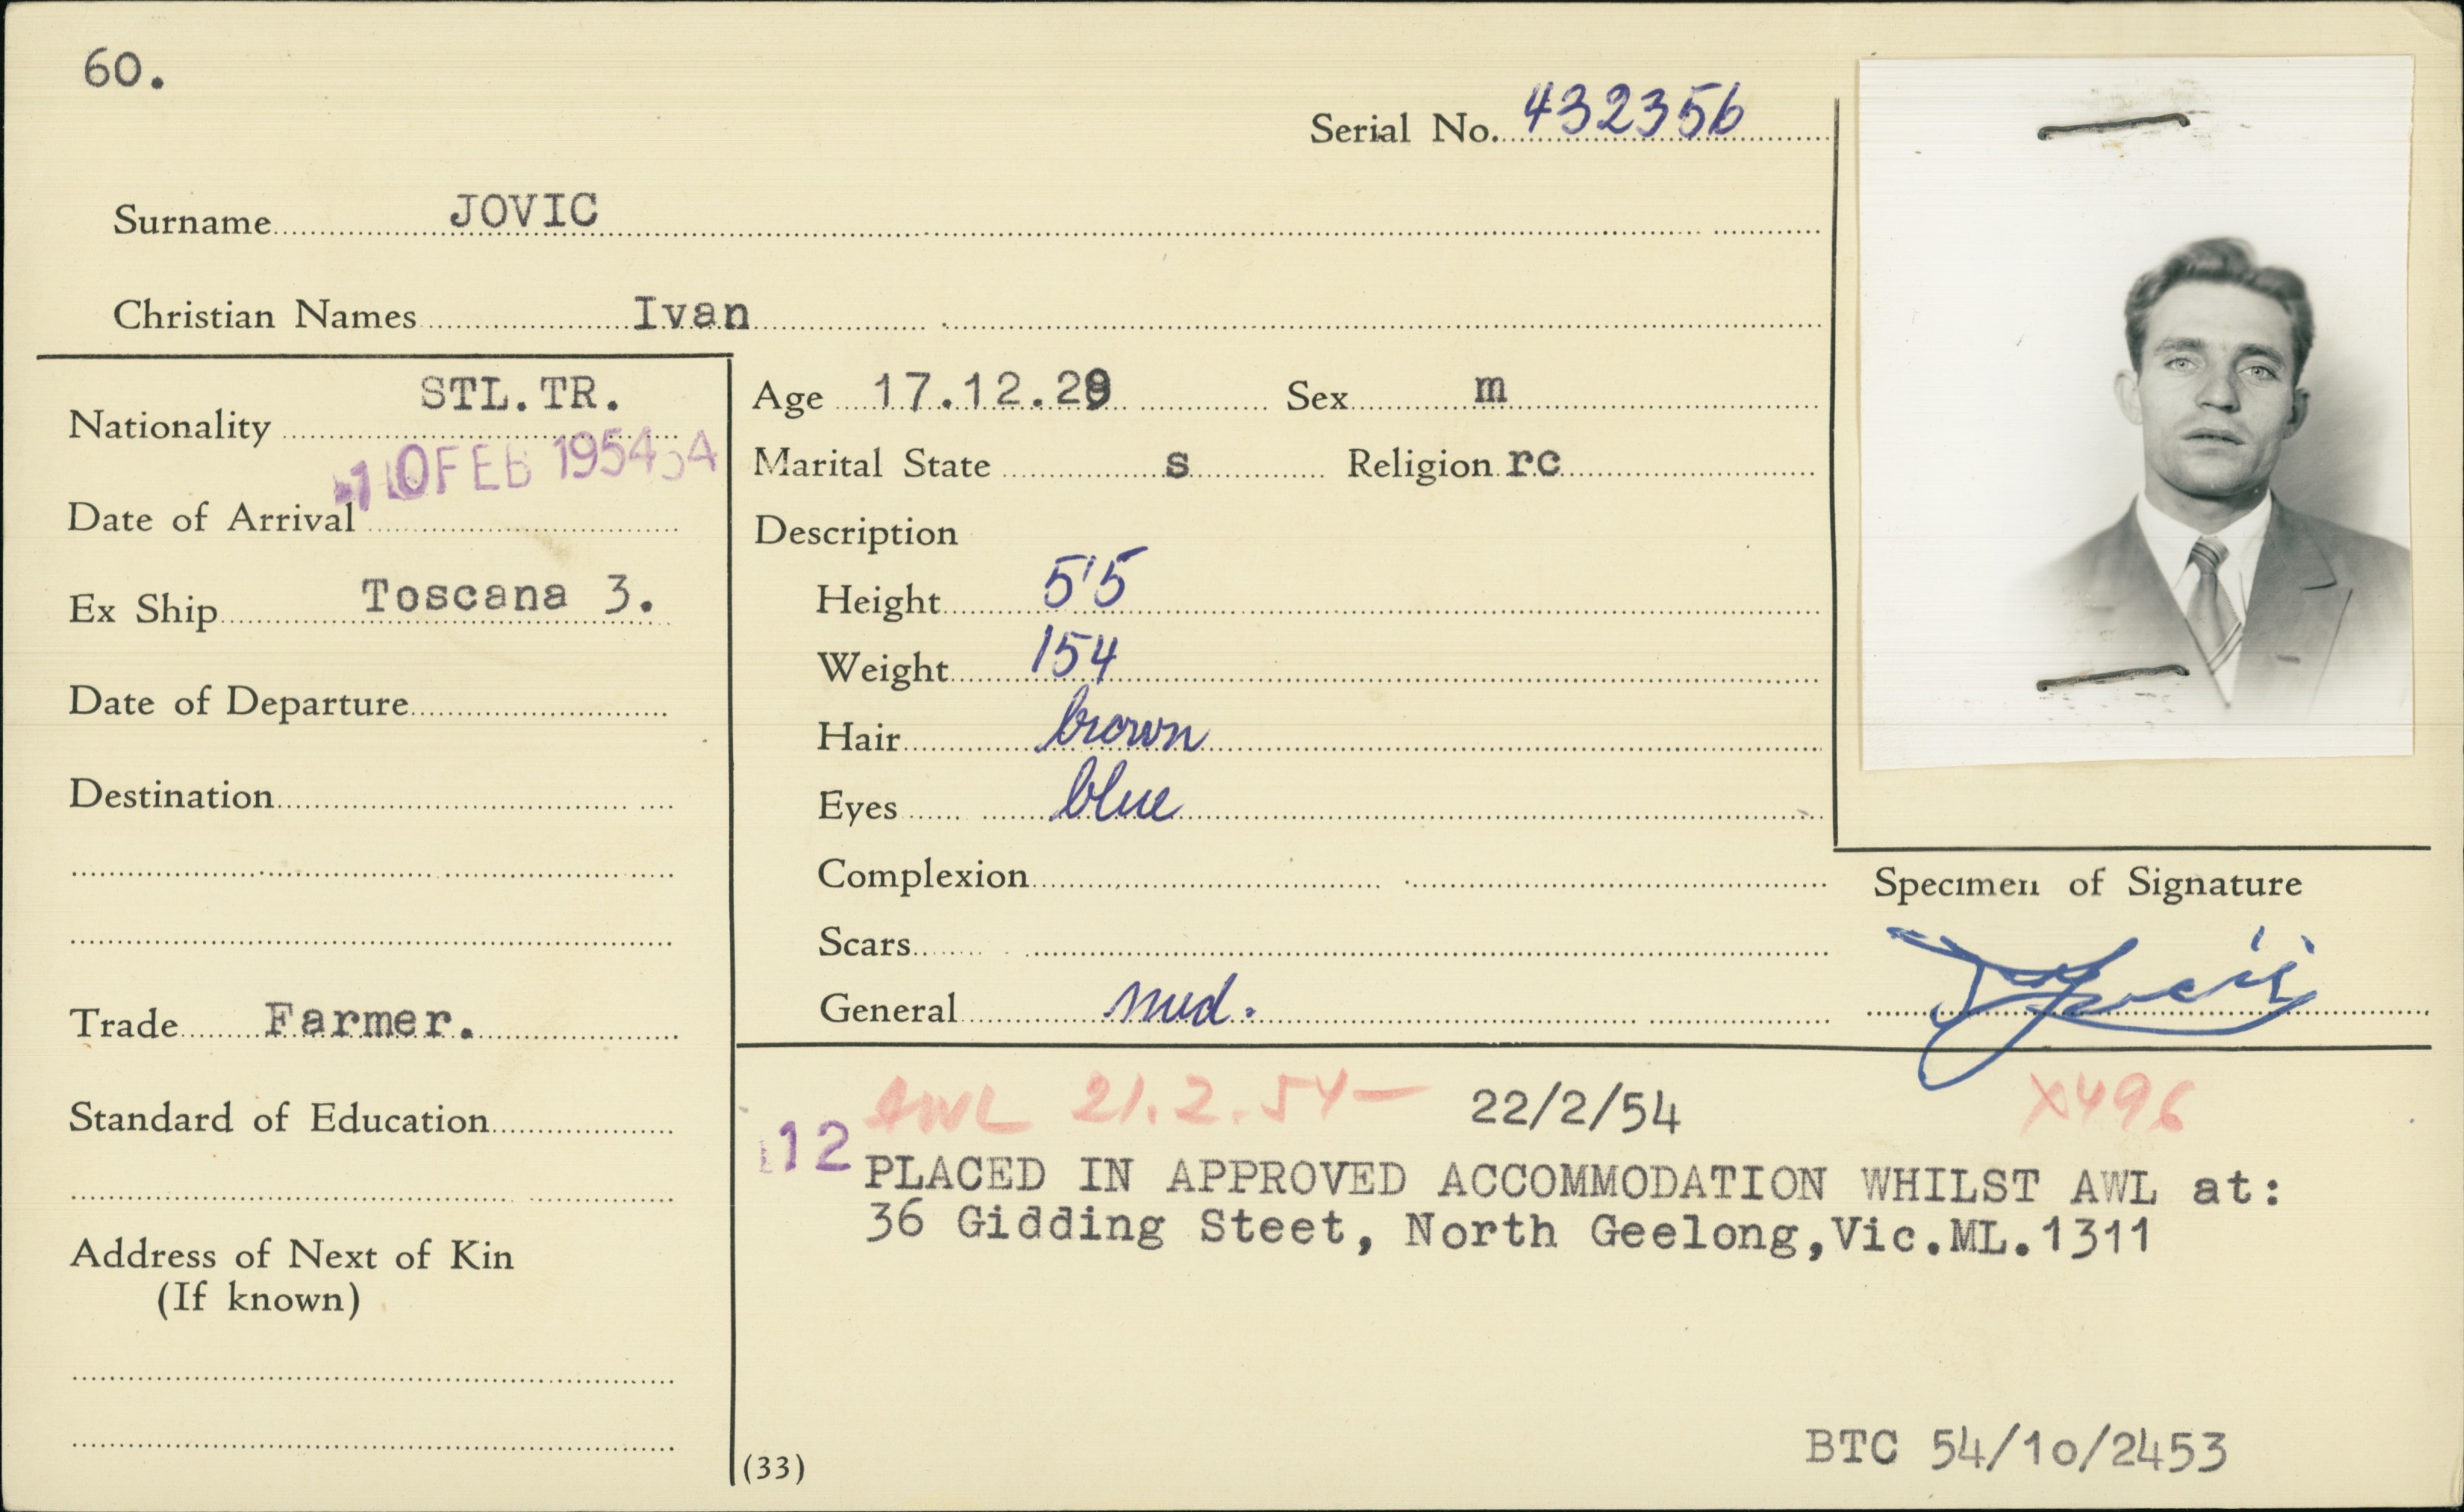 60.
Serial No. 432356
Surname JOVIC
Christian Names Ivan
Nationality STL.TR.
10 FEB 1954
Date of Arrival
Ex Ship Toscana 3.
Date of Departure
Destination
Trade Farmer.
Standard of Education
Address of Next of Kin
(If known)
Age 17.12.29 Sex m
Marital State s Religion rc
Description
Height 5'5
Weight 154
Hair brown
Eyes blue
Complexion
Scars
General med.
Specimen of Signature
AWL 21.2.54— 22/2/54 X496
12
PLACED IN APPROVED ACCOMMODATION WHILST AWL at:
36 Gidding Steet, North Geelong,Vic.ML.1311
BTC 54/10/2453
(33)